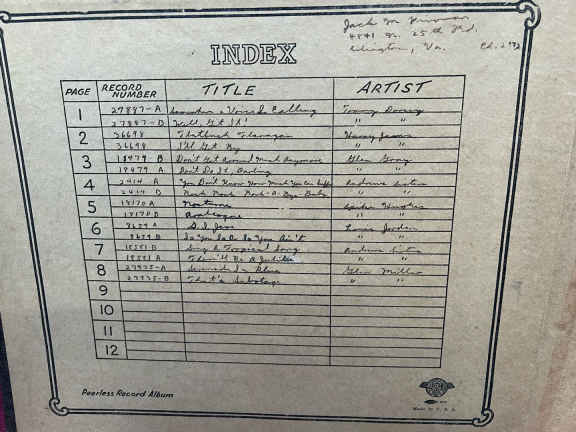 Jack M.
4541 N. 25th Rd.
Arlington, Va. Ch. 2
INDEX
PAGE RECORD NUMBER TITLE ARTIST
1 27887-A Somewhere a Voice Is Calling Tommy Dorsey
27887-B Well, Git It! " "
2 36698 Flatbush Flanagan Harry James
36698 I'll Get By " "
3 18479 B Don't Get Around Much Anymore Glen Gray
18479 A Don't Do It, Darling " "
4 2414 A "You Don't Know How Much You Can Suffer Andrews Sisters
2414 B Rock Rock Rock-A-Bye Baby " "
5 18170 A Nocturne Spike Hughes
18170 B Arabesque " "
6 8659 A G. I. Jive Louis Jordan
8659 B Is You Is Or Is You Ain't " "
7 18581 B Sing A Tropical Song Andrews Sisters
18581 A There'll Be A Jubilee " "
8 27935-A Serenade In Blue Glen Miller
27935-B That's Sabotage " "
9
10
11
12
Peerless Record Album
Made in U.S.A.